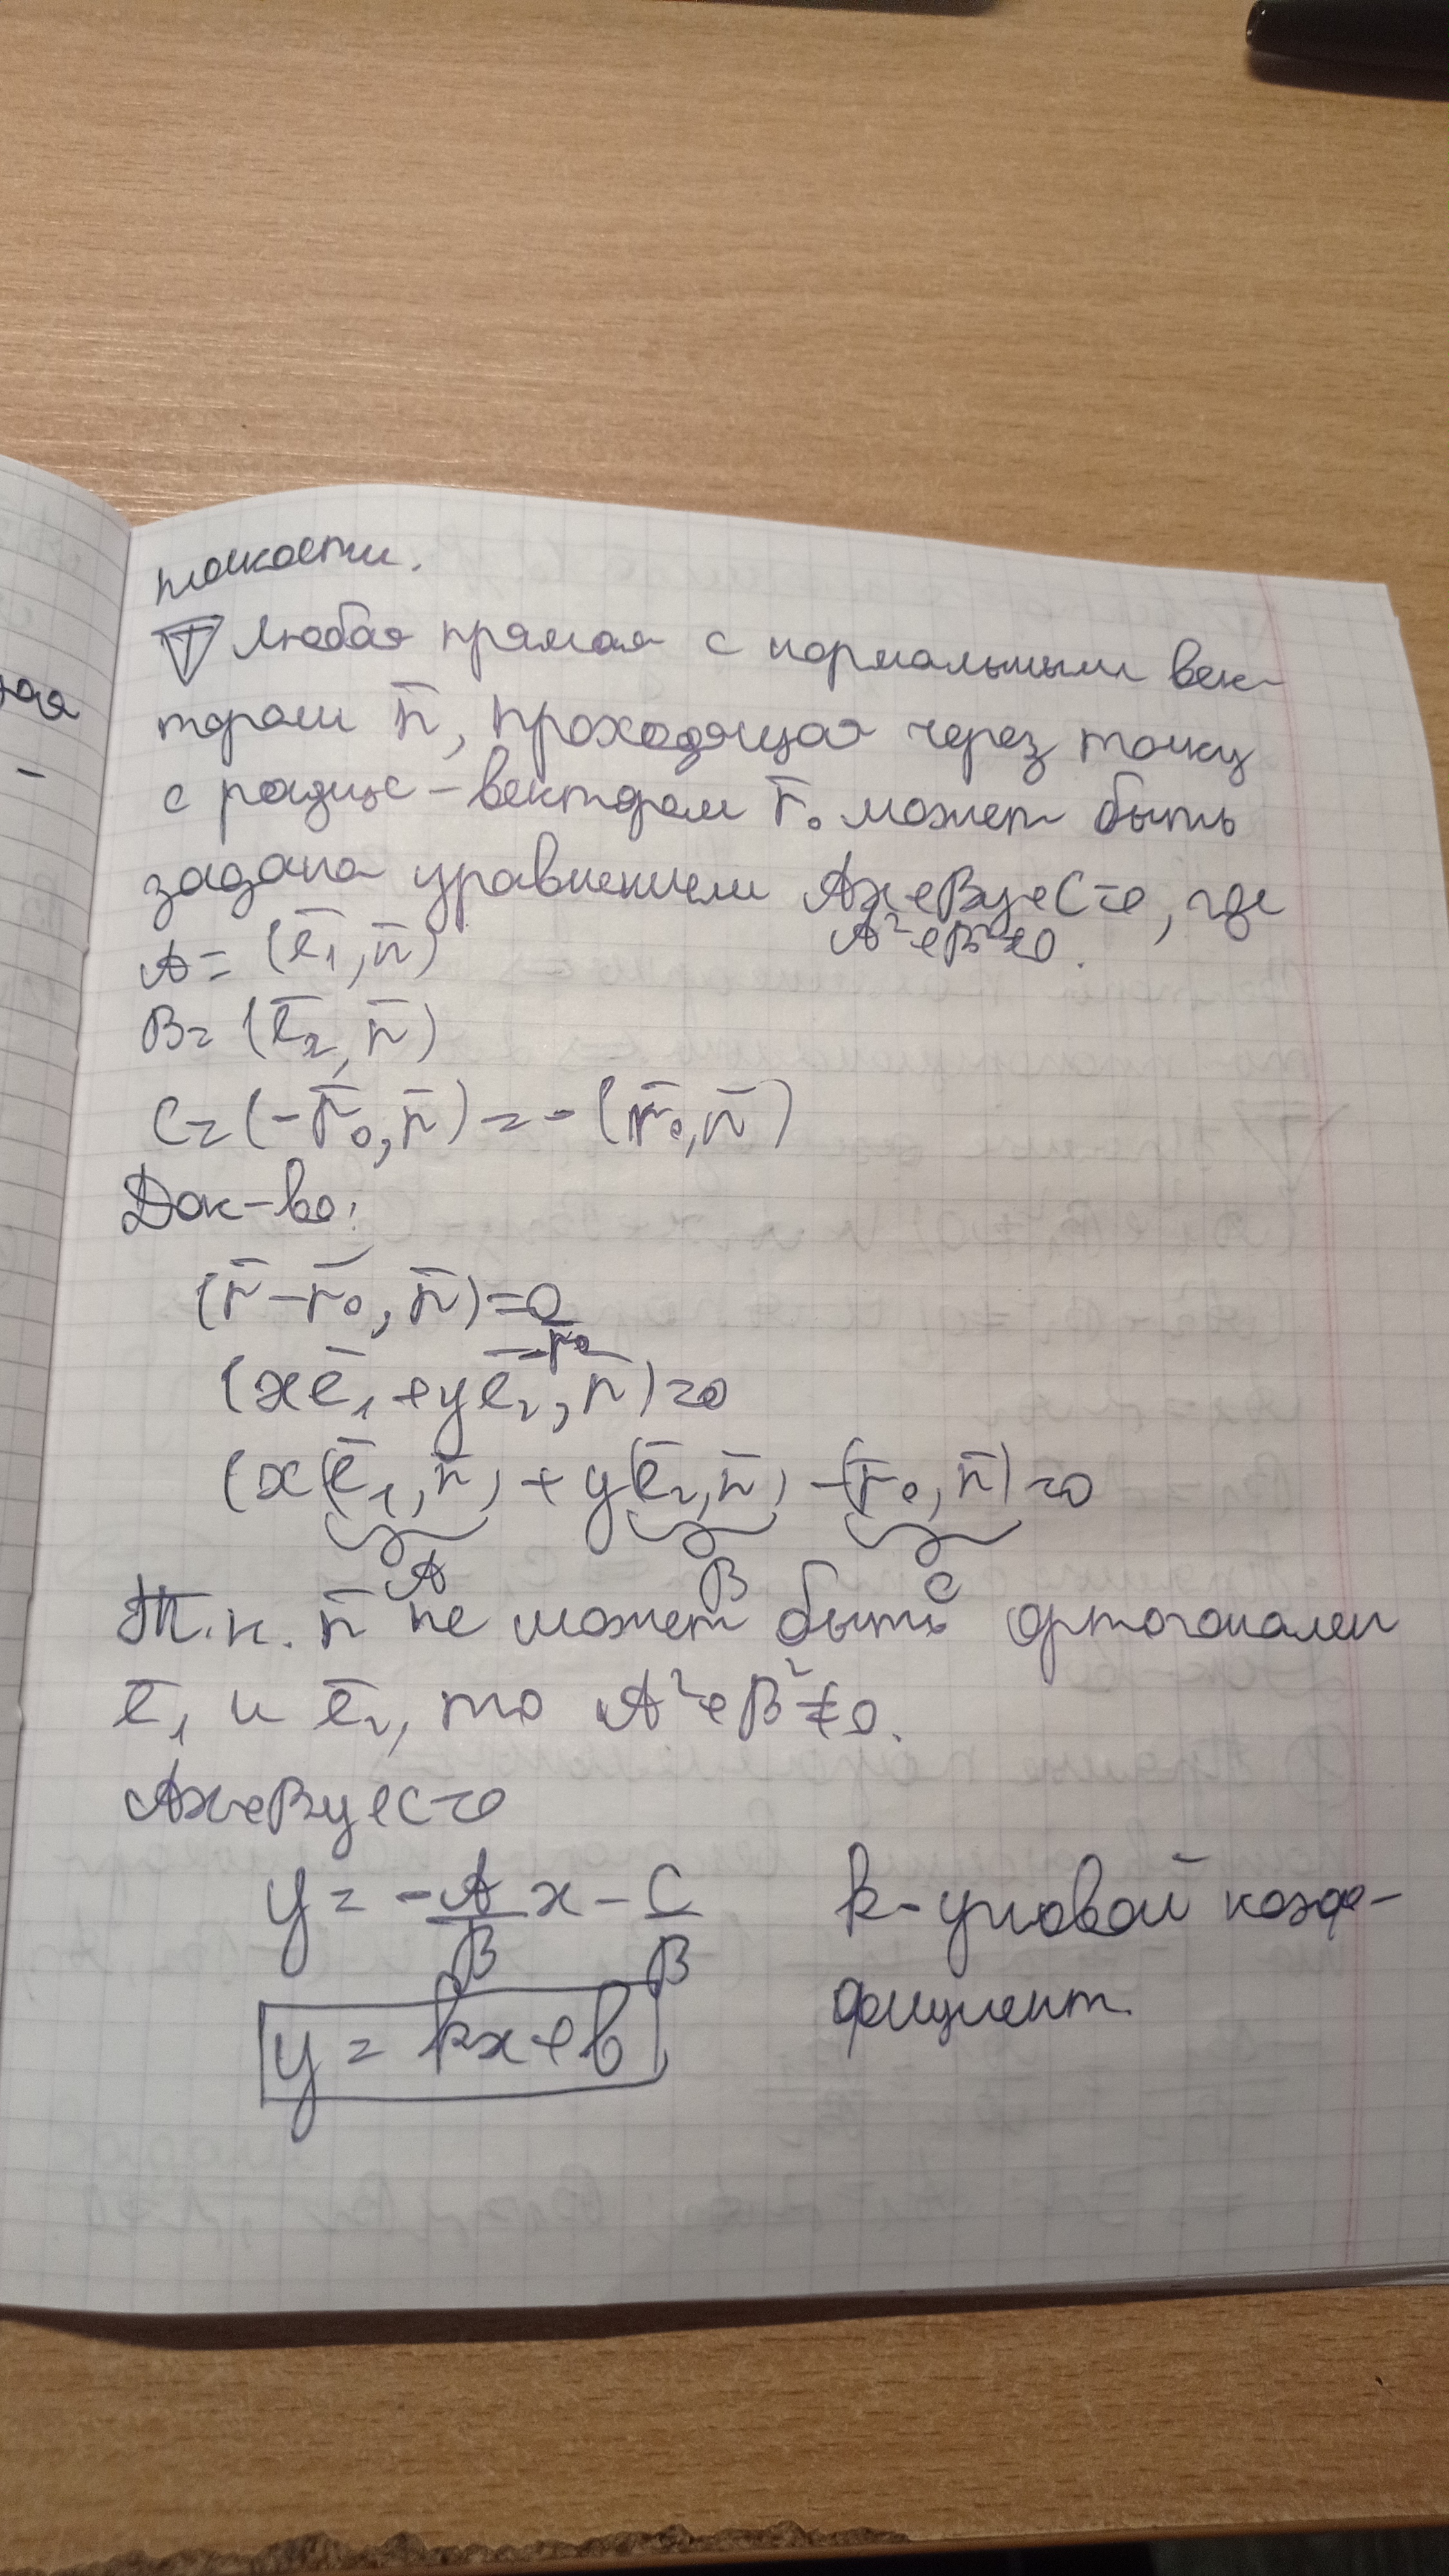 плоскости.
Ⓣ Любая прямая с нормальным век-
тором n̅, проходящая через точку
с радиус-вектором r̅₀ может быть
задана уравнением Ax+By+C=0, где
A²+B²≠0.
A= (e̅₁, n̅)
B= (e̅₂, n̅)
C= (-r̅₀, n̅) = -(r̅₀, n̅)
Док-во:
(r̅-r̅₀, n̅)=0
(xe̅₁+ye̅₂-r̅₀, n̅)=0
(x(e̅₁, n̅) + y(e̅₂, n̅) -(r̅₀, n̅)=0
A B C
Т.к. n̅ не может быть ортогонален
e̅₁ и e̅₂, то A²+B²≠0.
Ax+By+C=0
y = -A/B x - C/B
k-угловой коэф-
фициент.
y = kx+b
ная
-